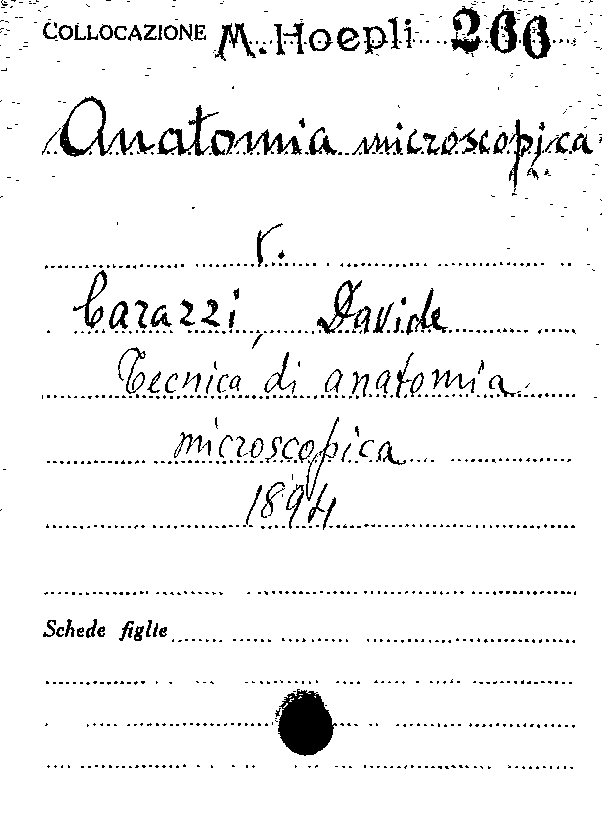 COLLOCAZIONE M. Hoepli 266
Anatomia microscopica
v.
Carazzi, Davide
Tecnica di anatomia
microscopica
1894
Schede figlie